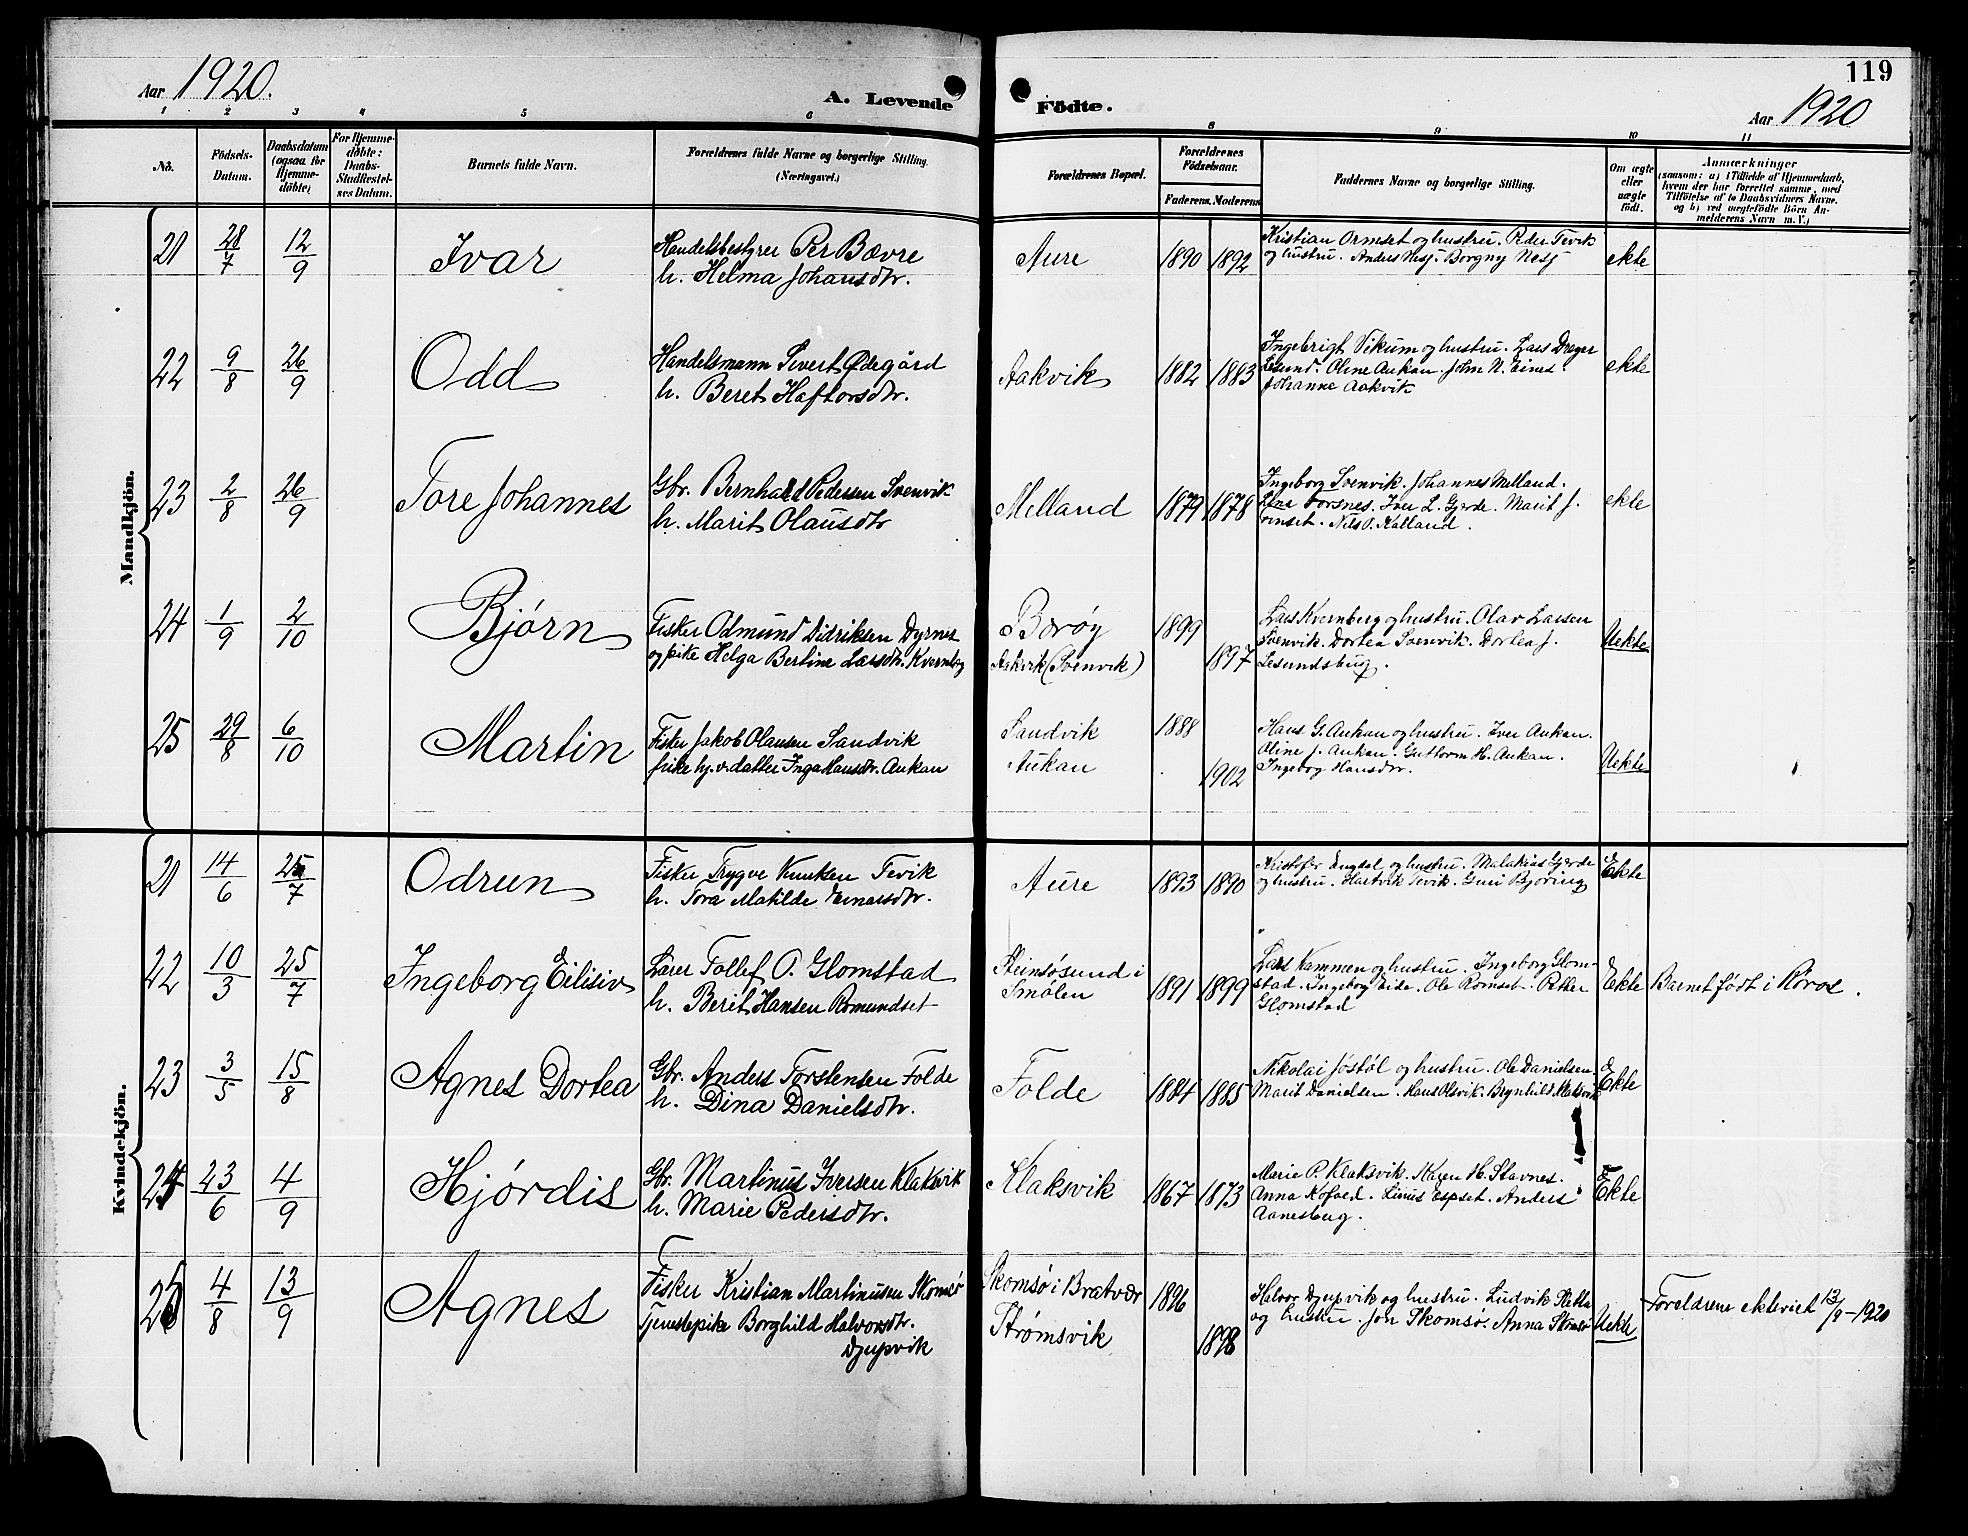 Aar 1920.
A. Levende Födte.
119
Aar 1920
1 2 3 4 5 6 8 9 10 11
No.
Födsels-Datum.
Daabsdatum (ogsaa for Hjemmedöbte)
For Hjemmedöbte: Daabs-Stadfestelses Datum.
Barnets fulde Navn.
Forældrenes fulde Navne og borgerlige Stilling. (Næringsvei.)
Forældrenes Bopæl.
Forældrenes Födselsaar.
Faderens. Moderens
Faddernes Navne og borgerlige Stilling.
Om ægte eller uægte födt.
Anmærkninger
(saasom: a) i Tilfælde af Hjemmedaab,
hvem der har forrettet samme, med
Tilföielse af to Daabsvidners Navne,
og b) ved uægtefödte Börn An-
melderens Navn m. V.)
Mandkjön.
21 28/7 12/9 Ivar
Handelsbestyrer Per Bævre
h. Helma Johansdtr.
Aure 1890 1892
Kristian Ormset og hustru. Peder Tevik
og hustru. Anders Nesj. Borgny Nesj
ekte
22 9/8 26/9 Odd
Handelsmann Sivert Ødegård
h. Beret Haftorsdtr.
Aakvik 1882 1883
Ingebrigt Vikum og hustru. Lars Dreyer
Lesund. Oline Aukan. John N. Eines
Johanne Aakvik
ekte
23 2/8 26/9 Tore Johannes
Gbr. Bernhard Pedersen Svenvik
h. Marit Olausdtr
Melland 1879 1878
Ingeborg Svenvik. Johannes Melland.
Lene Torsnes. Iver L. Gjerde. Marit J.
Nils O. Kalland.
ekte
24 1/9 2/10 Bjørn
Fisker Odmund Didriksen Dyrnes
og pike Helga Bertine Larsdtr. Kvernberg
Borøy
Aakvik (Svenvik)
1899
1897
Lars Kvernberg og hustru. Olav Larsen
Svenvik. Dortea Svenvik. Dortea J.
Lesundsbug.
Uekte
25 29/8 6/10 Martin
Fisker Jakob Olausen Sandvik
pike hj.v. datter Inga Hansdtr. Aukan
Sandvik
Aukan
1888
1902
Hans G. Aukan og hustru. Iver Aukan.
Oline J. Aukan. Guttorm H. Aukan.
Ingebog Hansdtr.
Uekte
Kvindekjön.
21 14/6 25/7 Odrun
Fisker Trygve Knutsen Tevik
h. Tora Matilde Einarsdtr.
Aure 1893 1890
Kristofer Engdal og hustru. Malakias Gjerde
og hustru. Hartvik Tevik. Guri Bjøring
Ekte
22 10/3 25/7 Ingeborg Eilisiv
Lærer Tollef O. Glomstad
h. Berit Hansen Romundset
Steinsøsund i
Smølen
1891 1899
Lars Kammen og hustru. Ingeborg Glom-
stad. Ingebog Eide. Ole Romset. Petter
Glomstad
Ekte
Barnet født i Røros.
23 3/5 15/8 Agnes Dortea
Gbr. Anders Torstensen Folde
h. Dina Danielsdtr.
Folde 1884 1885
Nikolai Jøstøl og hustru. Ole Danielsen.
Marit Danielsen. Hans Olsvik. Brynhild Klaksvik
Ekte
24 23/6 4/9 Hjørdis
Gbr. Martinus Iversen Klaksvik
h. Marie Pedersdtr.
Klaksvik 1867 1873
Marie P. Klaksvik. Karen H. Stavnes.
Anna Kofoed. Linus Espset. Anders
Aanesbug.
Ekte
25 4/8 13/9 Agnes
Fisker Kristian Martinusen Skomsø
Tjenestepike Borghild Halvorsdtr.
Djupvik
Skomsø i Bratvær
Strømsvik
1896
1898
Halvor Djupvik og hustru. Ludvik
og hustru. Jon Skomsø. Anna Skomsø
Uekte
Foreldrene ekteviet 13/9-1920